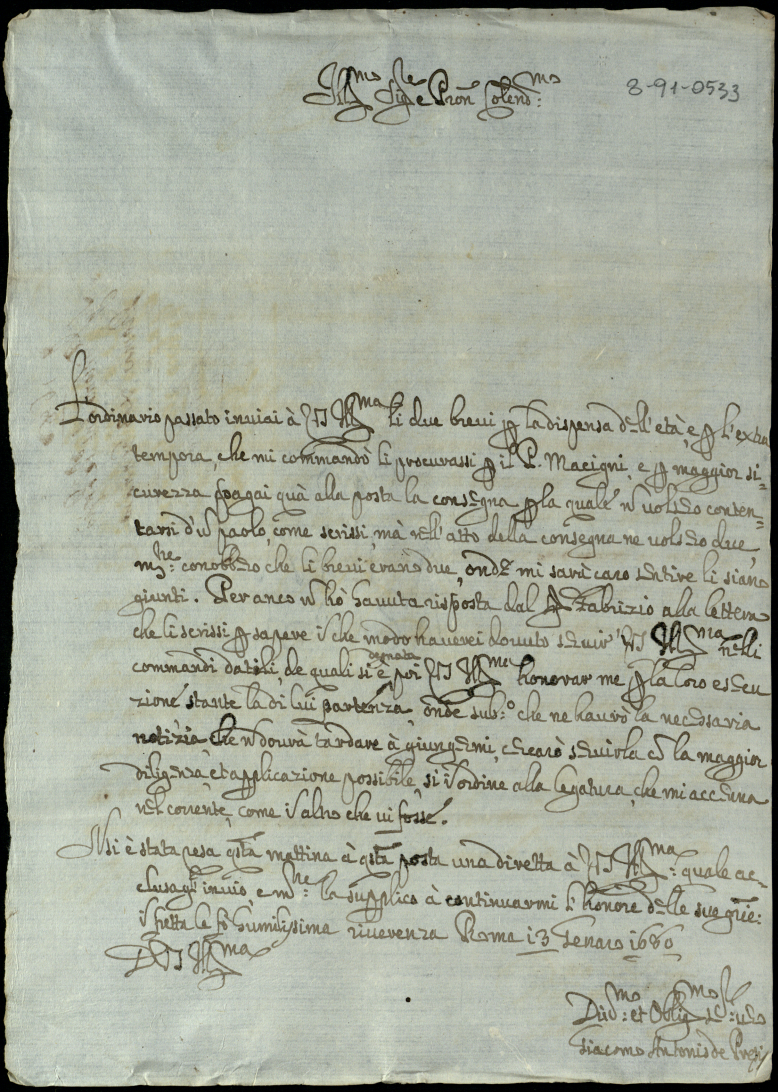 Ill.mo Sig.re e Pron Colend.mo:
8-91-0533
L'ordinario passato inviai à V.S. Ill.ma li due brevi p la dispensa dell'età, e p l'extra
tempora, che mi commandò li procurassi p il P. Macigni, e p maggior si-
curezza pagai quà alla posta la consegna p la quale volsero conten-
tarsi d'un paolo, come scrissi, mà nell'atto della consegna ne volsero due,
m.re: conobbero che li brevi erano due, onde mi sarà caro sentire li siano
giunti. Per anco hò havuta risposta dal Fabrizio alla lettera
che li scrissi p sapere che modo haverei dovuto servir' V.S. Ill.ma nelli
commandi datili, de quali si è degnata poi V.S. Ill.ma honorar me p la loro esecu
zione stante la di lui partenza, onde sub.o che ne haurò la necessaria
notizia che dourà tardare à giungermi, cercarò servirla la maggior
diligenza, et applicazione possibile, si ordine alla legatura, che mi accenna
nel corrente, come altro che vi fosse.
è stata resa qsta mattina à qsta posta una diretta à V.S. Ill.ma: quale ac-
clusa invio, e m.re: la supplico à continuarmi l'honore delle sue grie:
fretta le fò humilissima riverenza Roma 13 Genaro 1680
D V.S. Ill.ma
Diu.mo: et Oblig.mo ser.re: vero
Giacomo Antonio de Preti